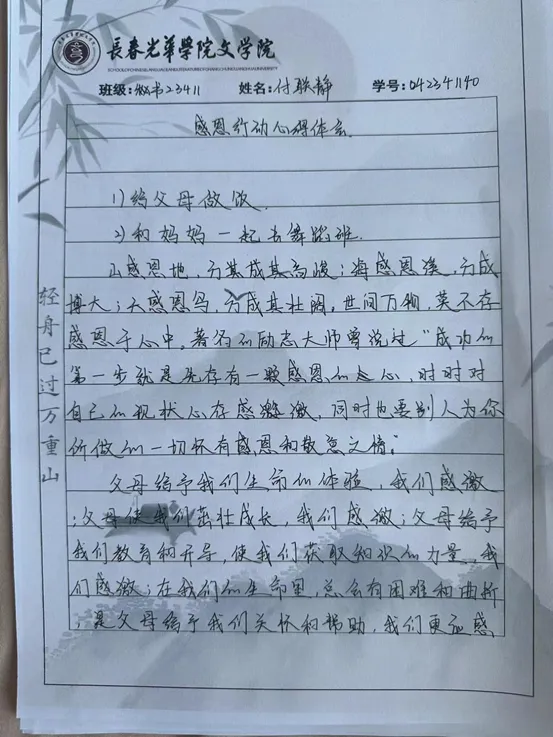 長春光華學院文学院
SCHOOL OF CHINESE LANGUAGE AND LITERATURE OF CHANGCHUN GUANGHUA UNIVERSITY
班级:秘书23411 姓名:付联静 学号:042341140
感恩行动心得体会
1)给父母做饭.
2)和妈妈一起去舞蹈班.
山感恩地,方其成其高峻;海感恩溪,方成
博大;天感恩鸟,方成其壮阔,世间万物,莫不存
感恩于心中。著名的励志大师曾说过"成功的
第一步就是先存有一颗感恩的之心,时时对
自己的现状心存感激,同时也要别人为你
所做的一切怀有感恩和敬意之情。"
父母给予我们生命的体验,我们感激
;父母使我们茁壮成长,我们感激;父母给予
我们教育和开导,使我们获取知识的力量,我
们感激;在我们的生命里,总会有困难和曲折
;是父母给予我们关怀和帮助,我们更应感
轻舟已过万重山